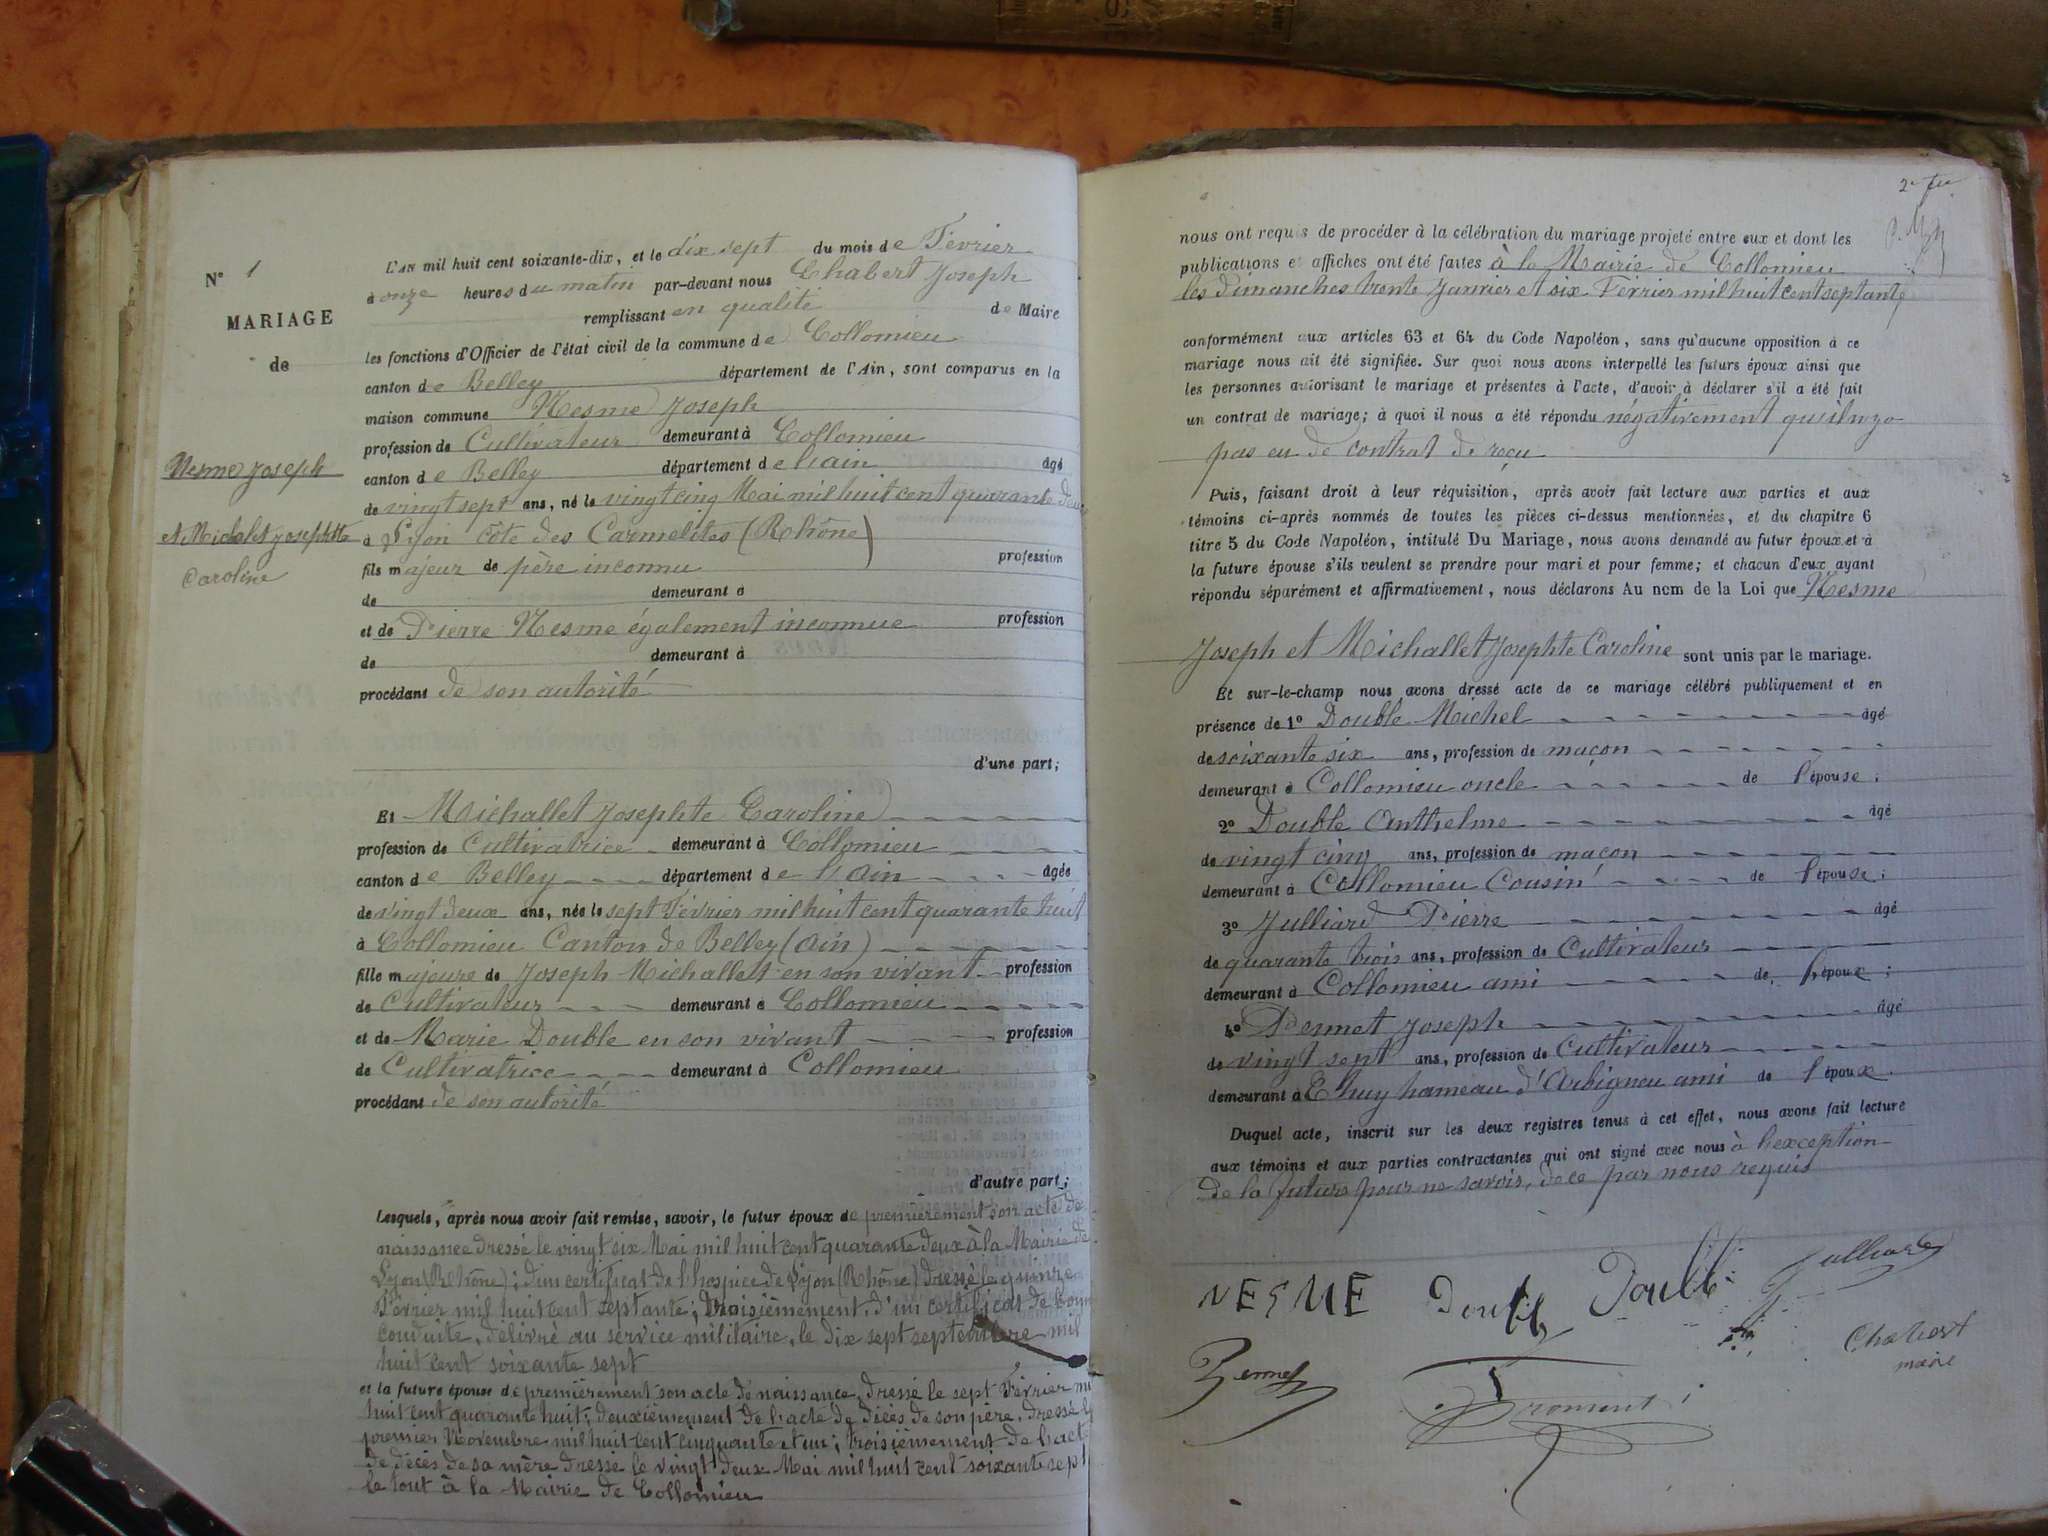 N° 1
MARIAGE
de
Nesme Joseph
et Michalet Josephte
Caroline
L'AN mil huit cent soixante-dix, et le dix sept du mois de Février
à onze heures du matin par-devant nous Chabert Joseph
remplissant en qualité de Maire
les fonctions d'Officier de l'état civil de la commune de Collomieu
canton de Belley département de l'Ain, sont comparus en la
maison commune Nesme Joseph
profession de Cultivateur demeurant à Collomieu
canton de Belley département de l'ain âgé
de vingt sept ans, né le vingt cinq Mai mil huit cent quarante deux
à Lyon côte des Carmelites (Rhône)
fils majeur de père inconnu profession
de demeurant à
et de Pierre Nesme également inconnue profession
de demeurant à
procédant de son autorité
d'une part;
Et Michallet Josephte Caroline
profession de Cultivatrice demeurant à Collomieu
canton de Belley département de l'Ain âgée
de vingt deux ans, née le sept Février mil huit cent quarante huit
à Collomieu Canton de Belley (Ain)
fille majeure de Joseph Michallet en son vivant profession
de Cultivateur demeurant à Collomieu
et de Marie Double en son vivant profession
de Cultivatrice demeurant à Collomieu
procédant de son autorité
d'autre part;
Lesquels, après nous avoir fait remise, savoir, le futur époux de premièrement son acte de
naissance dressé le vingt six Mai mil huit cent quarante deux à la Mairie de
Lyon (Rhône); d'un certificat de l'hospice de Lyon (Rhône) dressé le quinze
Février mil huit cent septante; troisièmement, d'un certificat de bonne
conduite, délivré au service militaire, le dix sept septembre mil
huit cent soixante sept
et la future épouse de premièrement son acte de naissance, dressé le sept Février mil
huit cent quarante huit; deuxièmement de l'acte de décès de son père, dressé le
premier Novembre mil huit cent cinquante et un; troisièmement de l'acte
de décès de sa mère dressé le vingt deux Mai mil huit cent soixante sept
le tout à la Mairie de Collomieu
nous ont requis de procéder à la célébration du mariage projeté entre eux et dont les
publications et affiches ont été faites à la Mairie de Collomieu
les dimanches trente Janvier et six Février mil huit cent septante
conformément aux articles 63 et 64 du Code Napoléon, sans qu'aucune opposition à ce
mariage nous ait été signifiée. Sur quoi nous avons interpellé les futurs époux ainsi que
les personnes autorisant le mariage et présentes à l'acte, d'avoir à déclarer s'il a été fait
un contrat de mariage; à quoi il nous a été répondu négativement qu'il n'y a
pas eu de contrat de reçu
Puis, faisant droit à leur réquisition, après avoir fait lecture aux parties et aux
témoins ci-après nommés de toutes les pièces ci-dessus mentionnées, et du chapitre 6
titre 5 du Code Napoléon, intitulé Du Mariage, nous avons demandé au futur époux et à
la future épouse s'ils veulent se prendre pour mari et pour femme; et chacun d'eux ayant
répondu séparément et affirmativement, nous déclarons Au nom de la Loi que Nesme
Joseph et Michallet Josephte Caroline sont unis par le mariage.
Et sur-le-champ nous avons dressé acte de ce mariage célébré publiquement et en
présence de 1° Double Michel âgé
de soixante six ans, profession de maçon
demeurant à Collomieu oncle de l'épouse;
2° Double Anthelme âgé
de vingt cinq ans, profession de maçon
demeurant à Collomieu Cousin de l'épouse;
3° Julliard Pierre âgé
de quarante trois ans, profession de Cultivateur
demeurant à Collomieu ami de l'époux;
4° Pernet Joseph âgé
de vingt sept ans, profession de Cultivateur
demeurant à Ethuy hameau d'Arbigneu ami de l'époux.
Duquel acte, inscrit sur les deux registres tenus à cet effet, nous avons fait lecture
aux témoins et aux parties contractantes qui ont signé avec nous à l'exception
de la future pour ne savoir, de ce par nous requis
NESME Double Doubl Julliard
Pernet Froment Chabert
maire